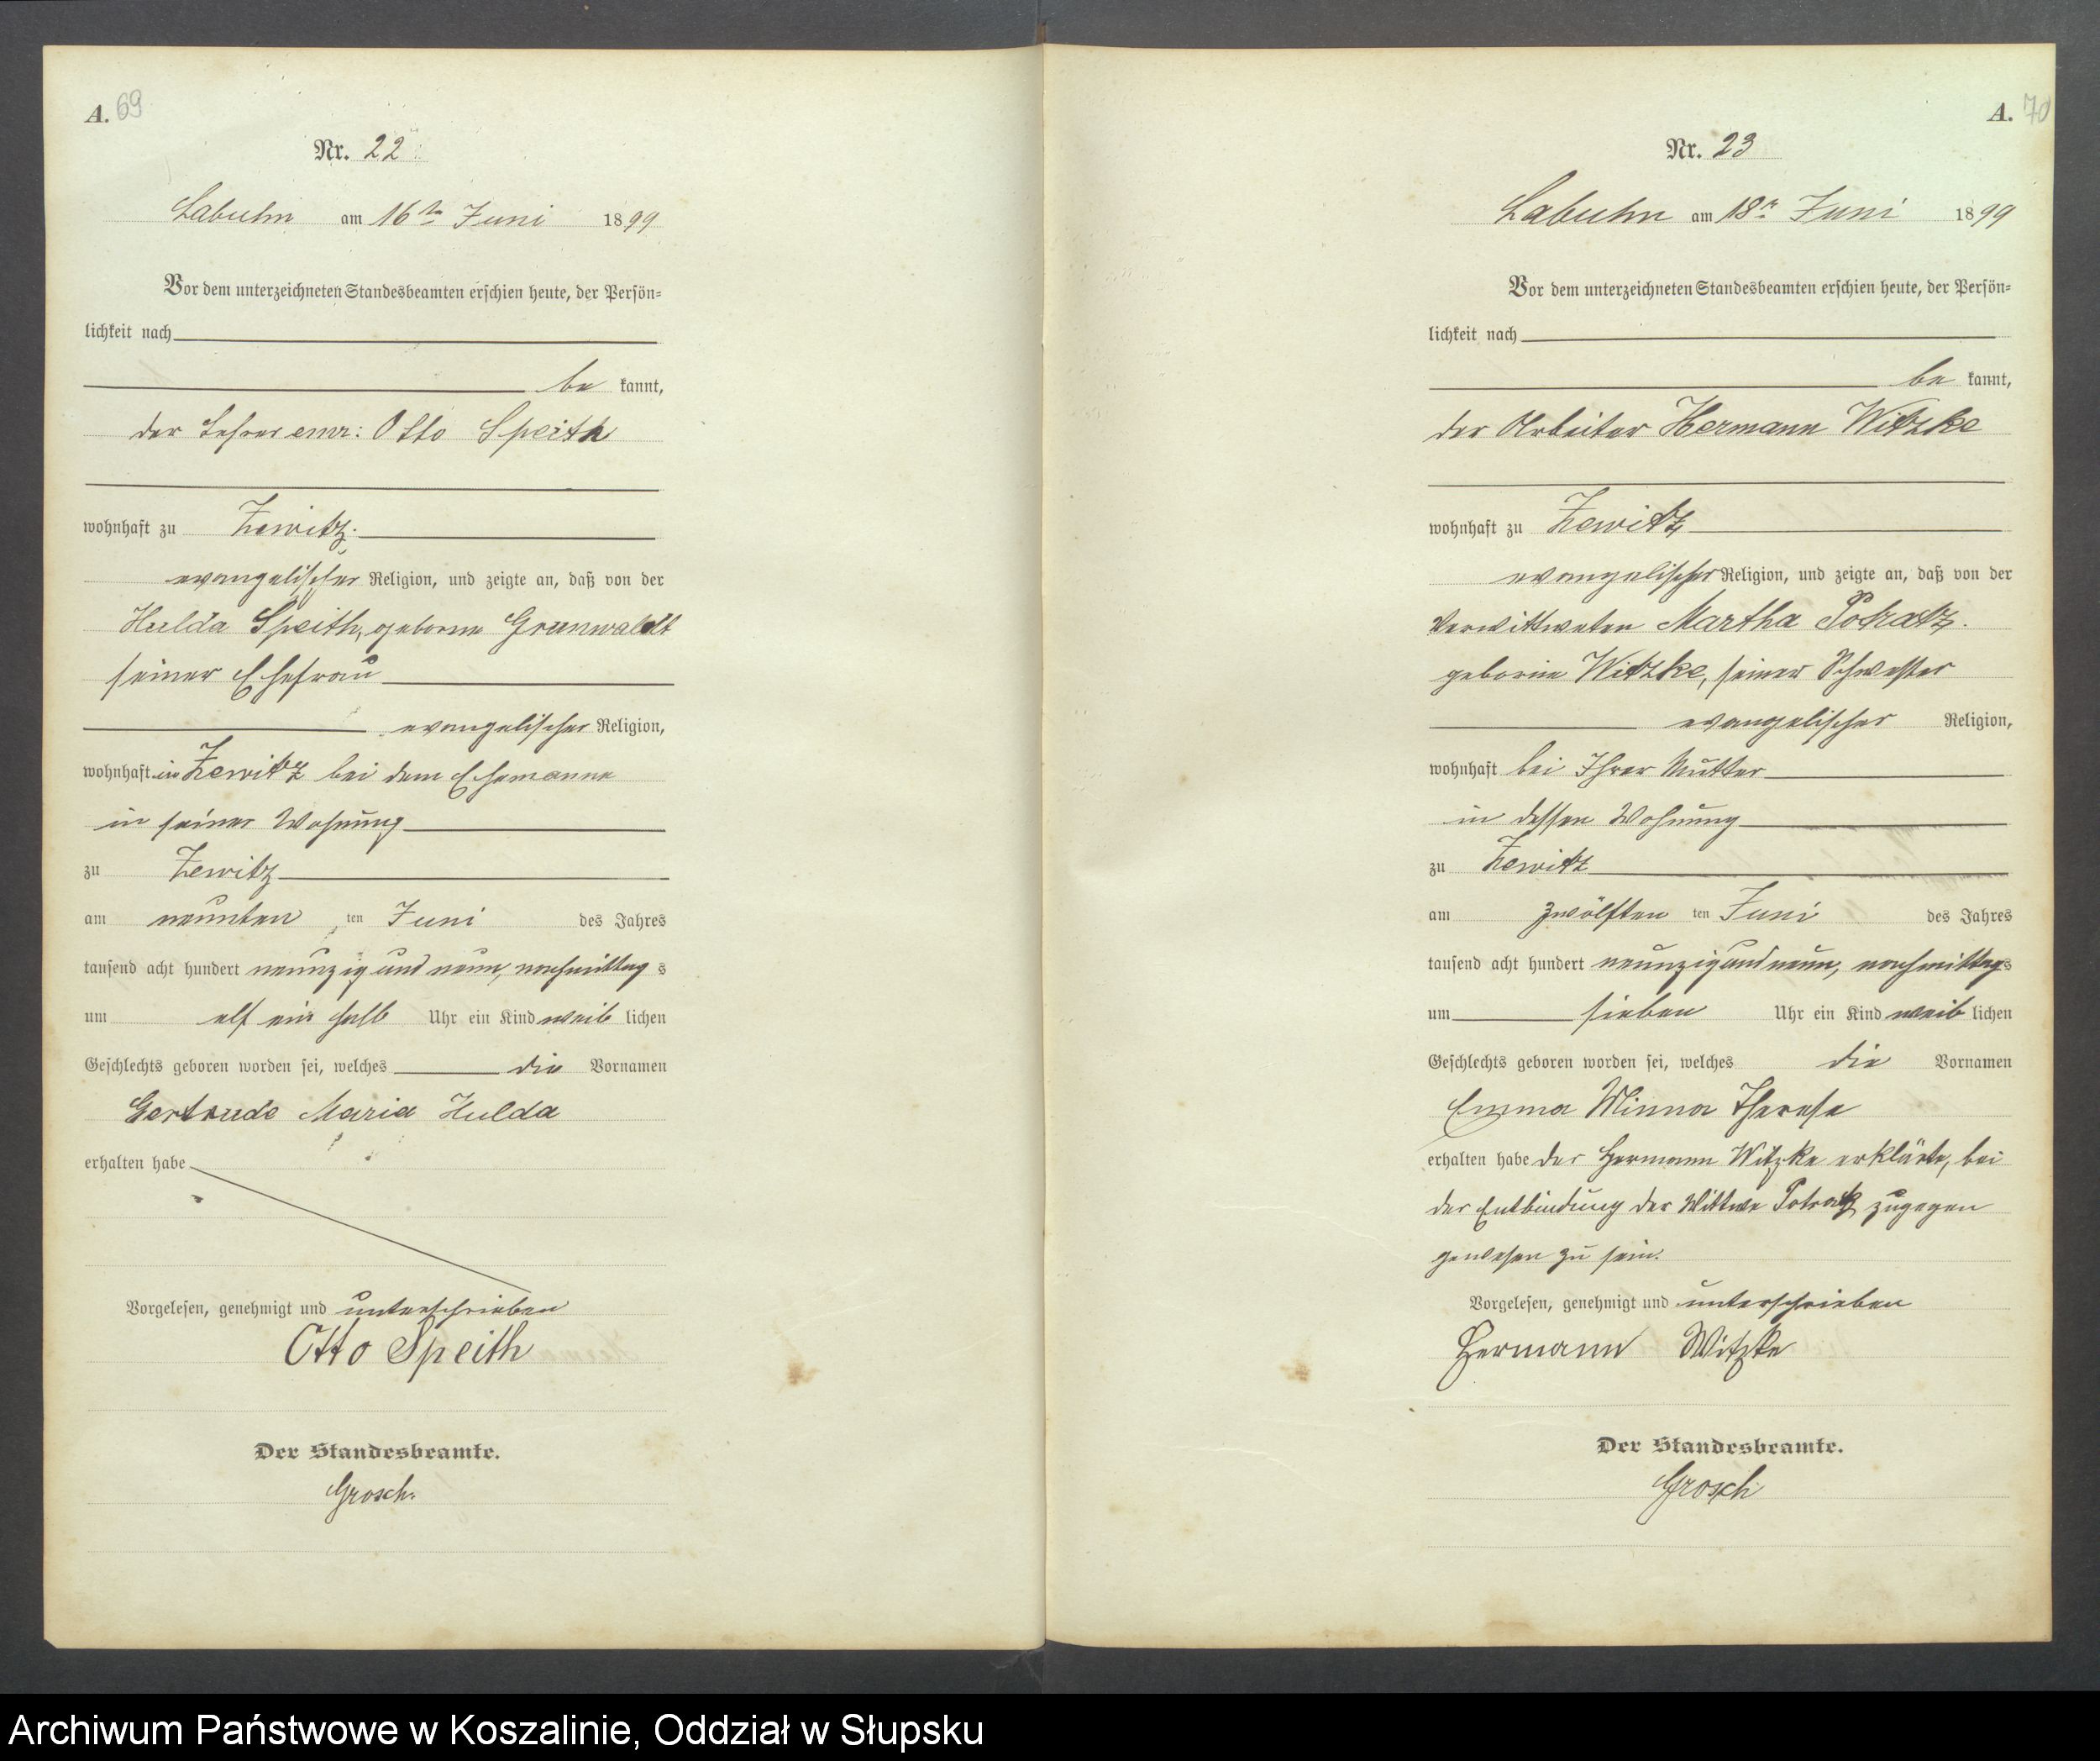 A. 69
Nr. 22
Labuhn am 16ten Juni 1899
Vor dem unterzeichneten Standesbeamten erschien heute, der Persön=
lichkeit nach
be kannt,
der Lehrer emr: Otto Speith
wohnhaft zu Zewitz.
evangelischer Religion, und zeigte an, daß von der
Hulda Speith, geborne Grunwaldt
seiner Ehefrau
evangelischer Religion,
wohnhaft in Zewitz bei dem Ehemanne
in seiner Wohnung
zu Zewitz
am neunten ten Juni des Jahres
tausend acht hundert neunzig und neun, nachmittag s
um elf ein halb Uhr ein Kind weib lichen
Geschlechts geboren worden sei, welches die Vornamen
Gertrude Maria Hulda
erhalten habe
Vorgelesen, genehmigt und unterschrieben
Otto Speith
Der Standesbeamte.
Grosch.
A. 70
Nr. 23
Labuhn am 18n Juni 1899
Vor dem unterzeichneten Standesbeamten erschien heute, der Persön=
lichkeit nach
be kannt,
der Arbeiter Hermann Witzke
wohnhaft zu Zewitz
evangelischer Religion, und zeigte an, daß von der
Verwittweten Martha Potratz.
geborne Witzke, seiner Schwester
evangelischer Religion,
wohnhaft bei Ihrer Mutter
in dessen Wohnung
zu Zewitz
am zwölften ten Juni des Jahres
tausend acht hundert neunzig und neun, nachmittags
um sieben Uhr ein Kind weib lichen
Geschlechts geboren worden sei, welches die Vornamen
Emma Minna Therese
erhalten habe der Hermann Witzke erklärte, bei
der Entbindung der Wittwe Potratz zugegen
gewesen zu sein.
Vorgelesen, genehmigt und unterschrieben
Hermann Witzke
Der Standesbeamte.
Grosch
Archiwum Państwowe w Koszalinie, Oddział w Słupsku